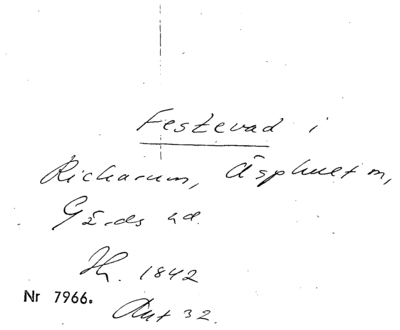 Festevad i
Richarum, Äsphult m,
Gärds hd.
1842
Nr 7966.
Ant 32.